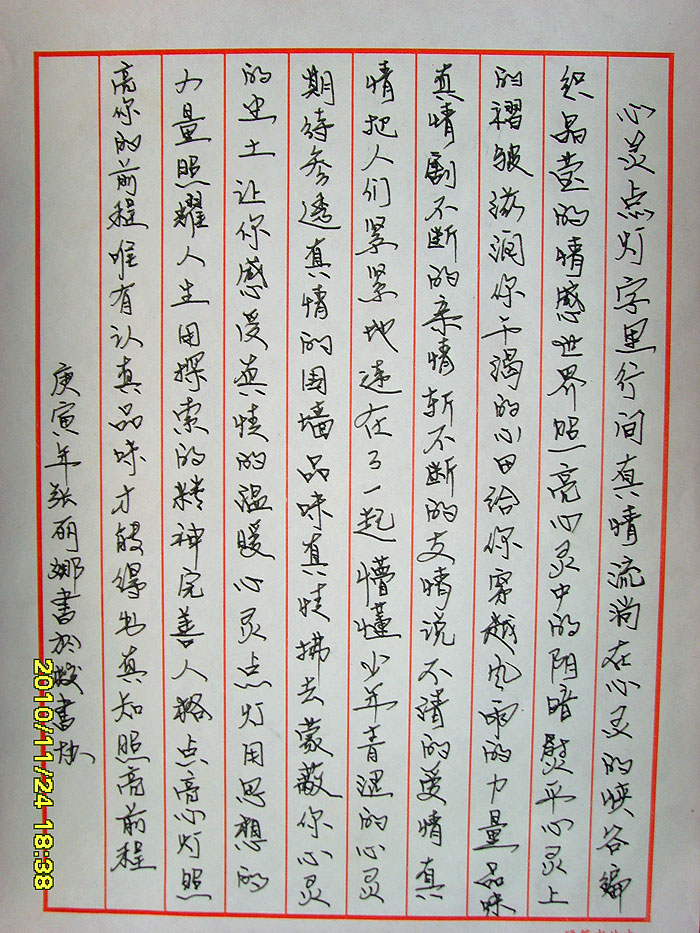 心灵点灯字里行间真情流淌在心灵的峡谷编
织晶莹的情感世界照亮心灵中的阴暗熨平心灵上
的褶皱滋润你干渴的心田给你穿越风雨的力量品味
真情割不断的亲情斩不断的友情说不清的爱情真
情把人们紧紧地连在了一起懵懂少年青涩的心灵
期待参透真情的围墙品味真情拂去蒙蔽你心灵
的尘土让你感受真情的温暖心灵点灯用思想的
力量照耀人生用探索的精神完善人格点亮心灯照
亮你的前程唯有认真品味才能得出真知照亮前程
庚寅年张丽娜书於
2010/11/24 18:38